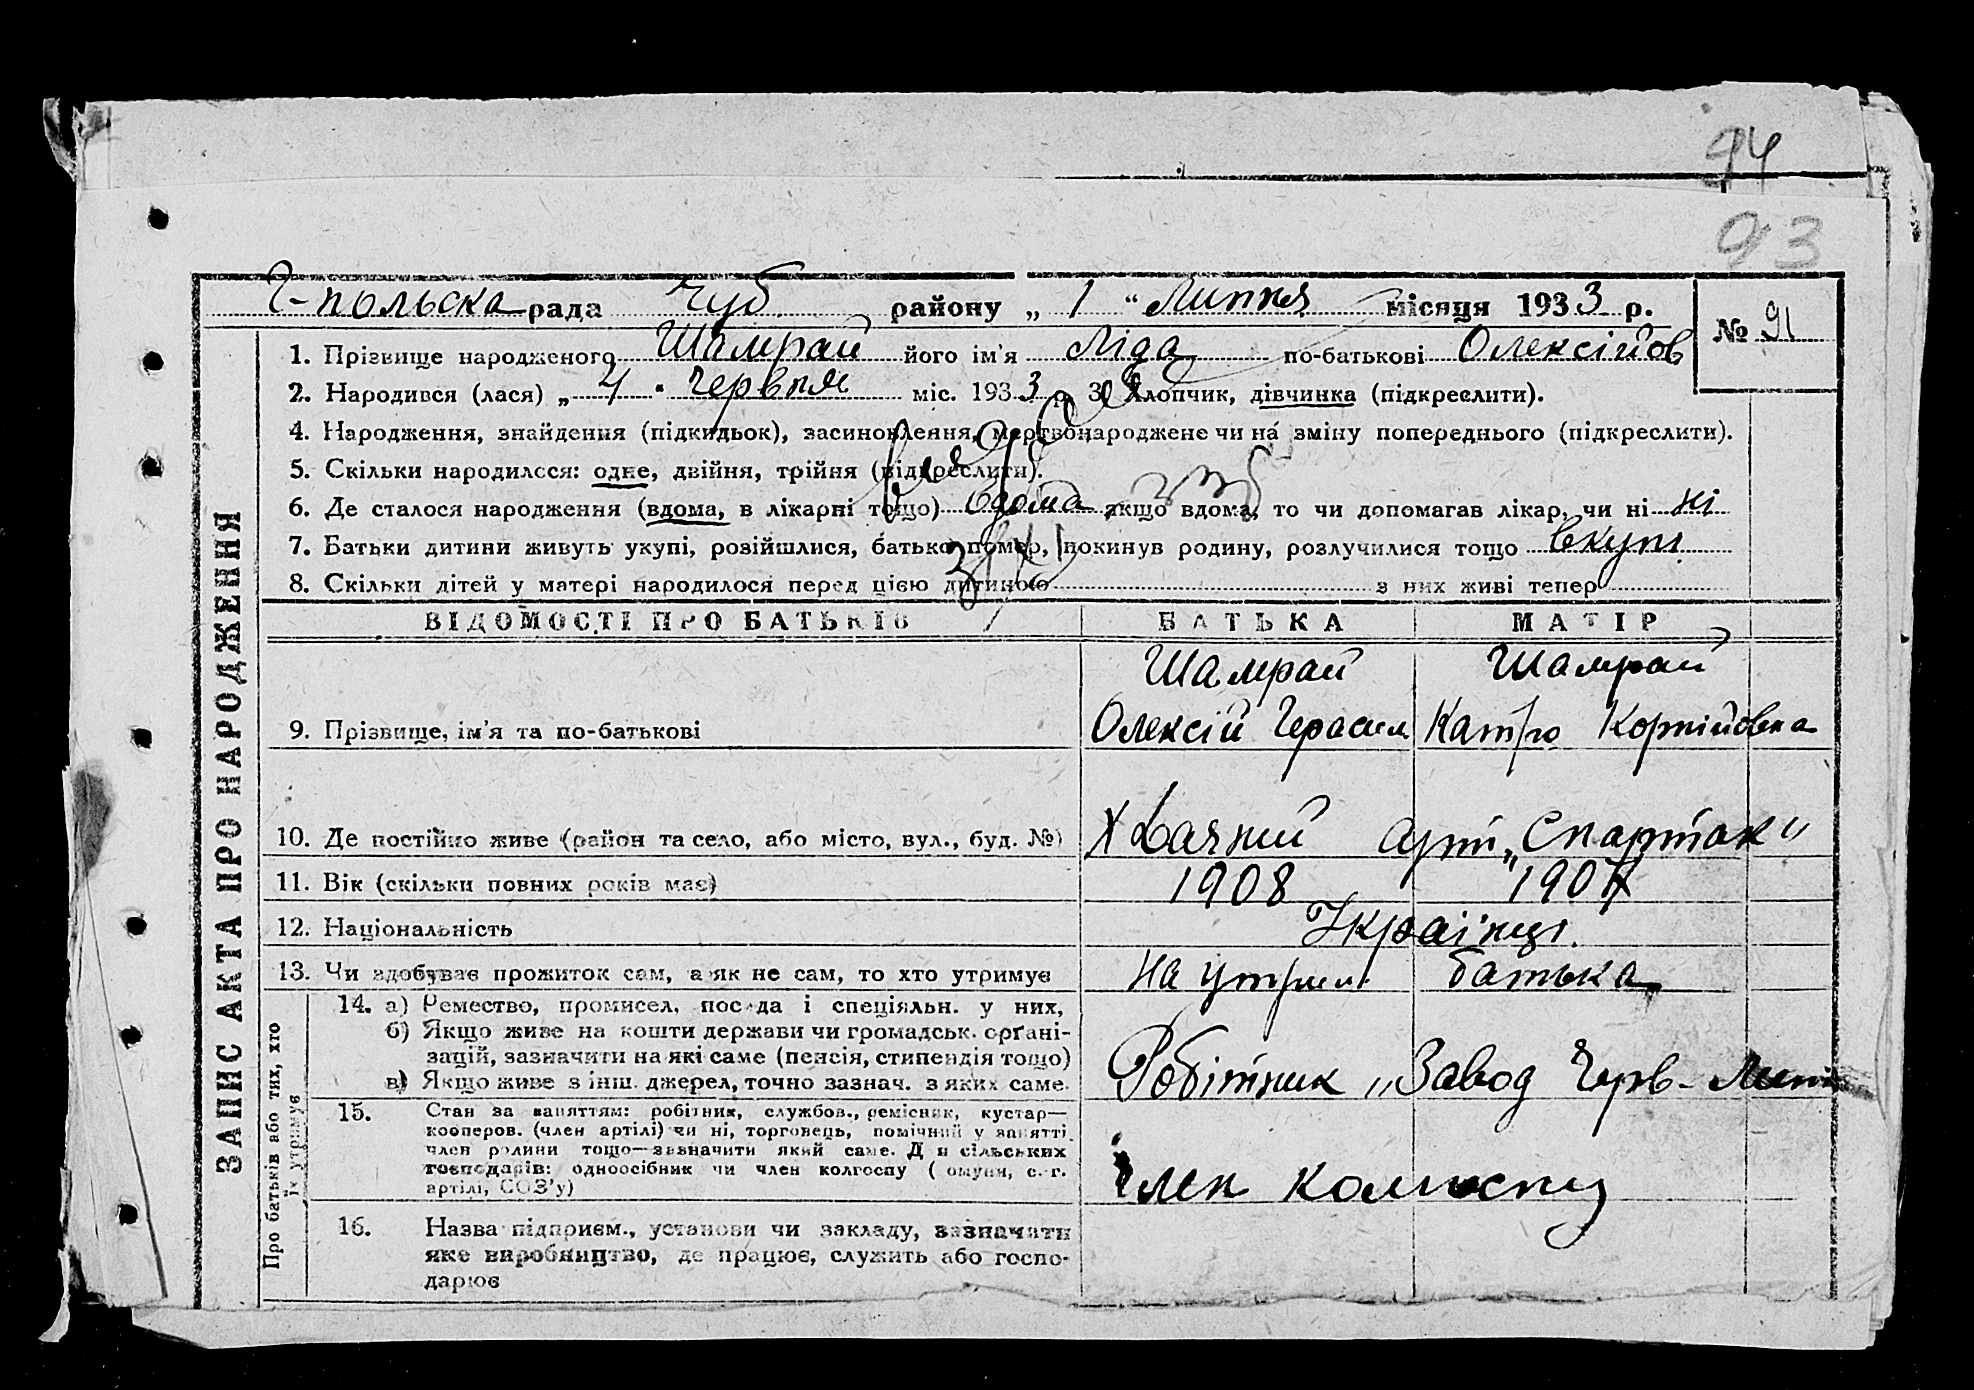 94
93
Г-польска рада Чуб району „ 1 “ Липня місяця 1933 р.
№ 91
1. Прізвище народженого Шамрай його ім'я Ліда по-батькові Олексійов
2. Народився (лася) „ 4 " червня міс. 1933 р. 3. Хлопчик, дівчинка (підкреслити).
4. Народження, знайдення (підкидьок), засиновлення, мертвонароджене чи на зміну попереднього (підкреслити).
5. Скільки народилося: одне, двійня, трійня (підкреслити).
6. Де сталося народження (вдома, в лікарні тощо) вдома, якщо вдома, то чи допомагав лікар, чи ні ні
7. Батьки дитини живуть укупі, розійшлися, батько помер, покинув родину, розлучилися тощо вкупі
8. Скільки дітей у матері народилося перед цією дитиною з них живі тепер
ЗАПИС АКТА ПРО НАРОДЖЕННЯ
ВІДОМОСТІ ПРО БАТЬКІВ БАТЬКА МАТІР
Шамрай Шамрай
9. Прізвище, ім'я та по-батькові Олексій Герасим Катря Корнійовна
10. Де постійно живе (район та село, або місто, вул., буд. №) арт „Спартак"
11. Вік (скільки повних років має) 1908
12. Національність Українці.
13. Чи здобуває прожиток сам, а як не сам, то хто утримує на утрим. батька
Про батьків або тих, хто їх утримує
14. а) Ремество, промисел, посада і спеціяльн. у них,
б) Якщо живе на кошти держави чи громадськ. органі-
зацій, зазначити на які саме (пенсія, стипендія тощо)
в) Якщо живе з інш. джерел, точно зазнач. з яких саме.
Робітник „Завод Черв-
15. Стан за заняттям: робітник, службов., ремісник, кустар—
кооперов. (член артілі) чи ні, торговець, помічний у занятті
член родини тощо—зазначити який саме. Для сільських
господарів: одноосібник чи член колгоспу (комуни, с.-г.
артілі, СОЗ'у)
Член колгоспу
16. Назва підприєм., установи чи закладу, зазначити
яке виробництво, де працює, служить або госпо-
дарює